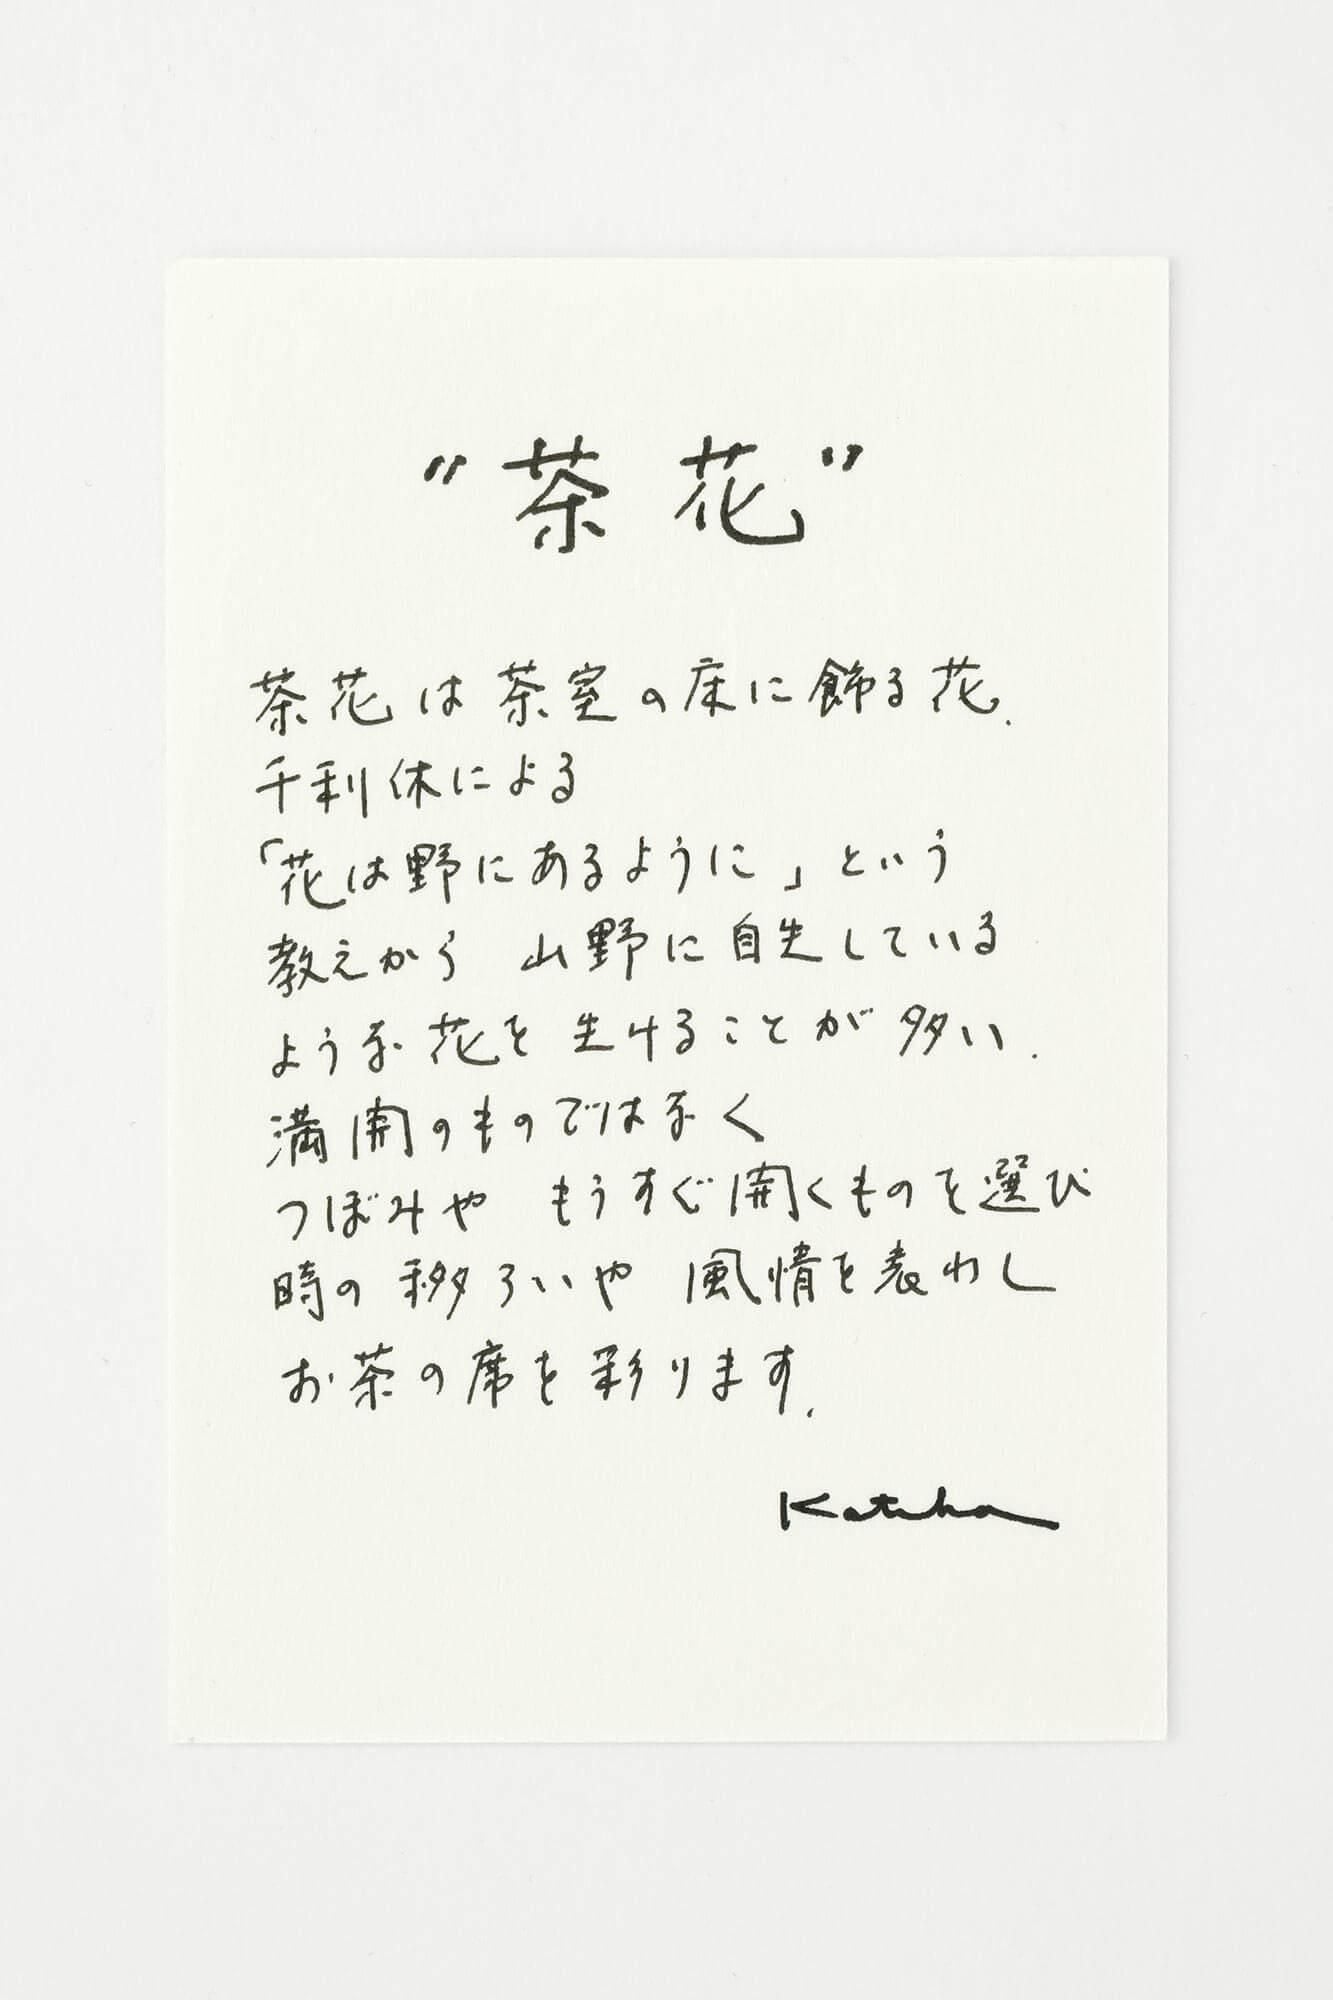 "茶花"
茶花は茶室の床に飾る花.
千利休による
「花は野にあるように」という
教えから 山野に自生している
ような花を 生けることが多い.
満開のものではなく
つぼみや もうすぐ開くものを選び
時の移ろいや 風情を表わし
お茶の席を彩ります.